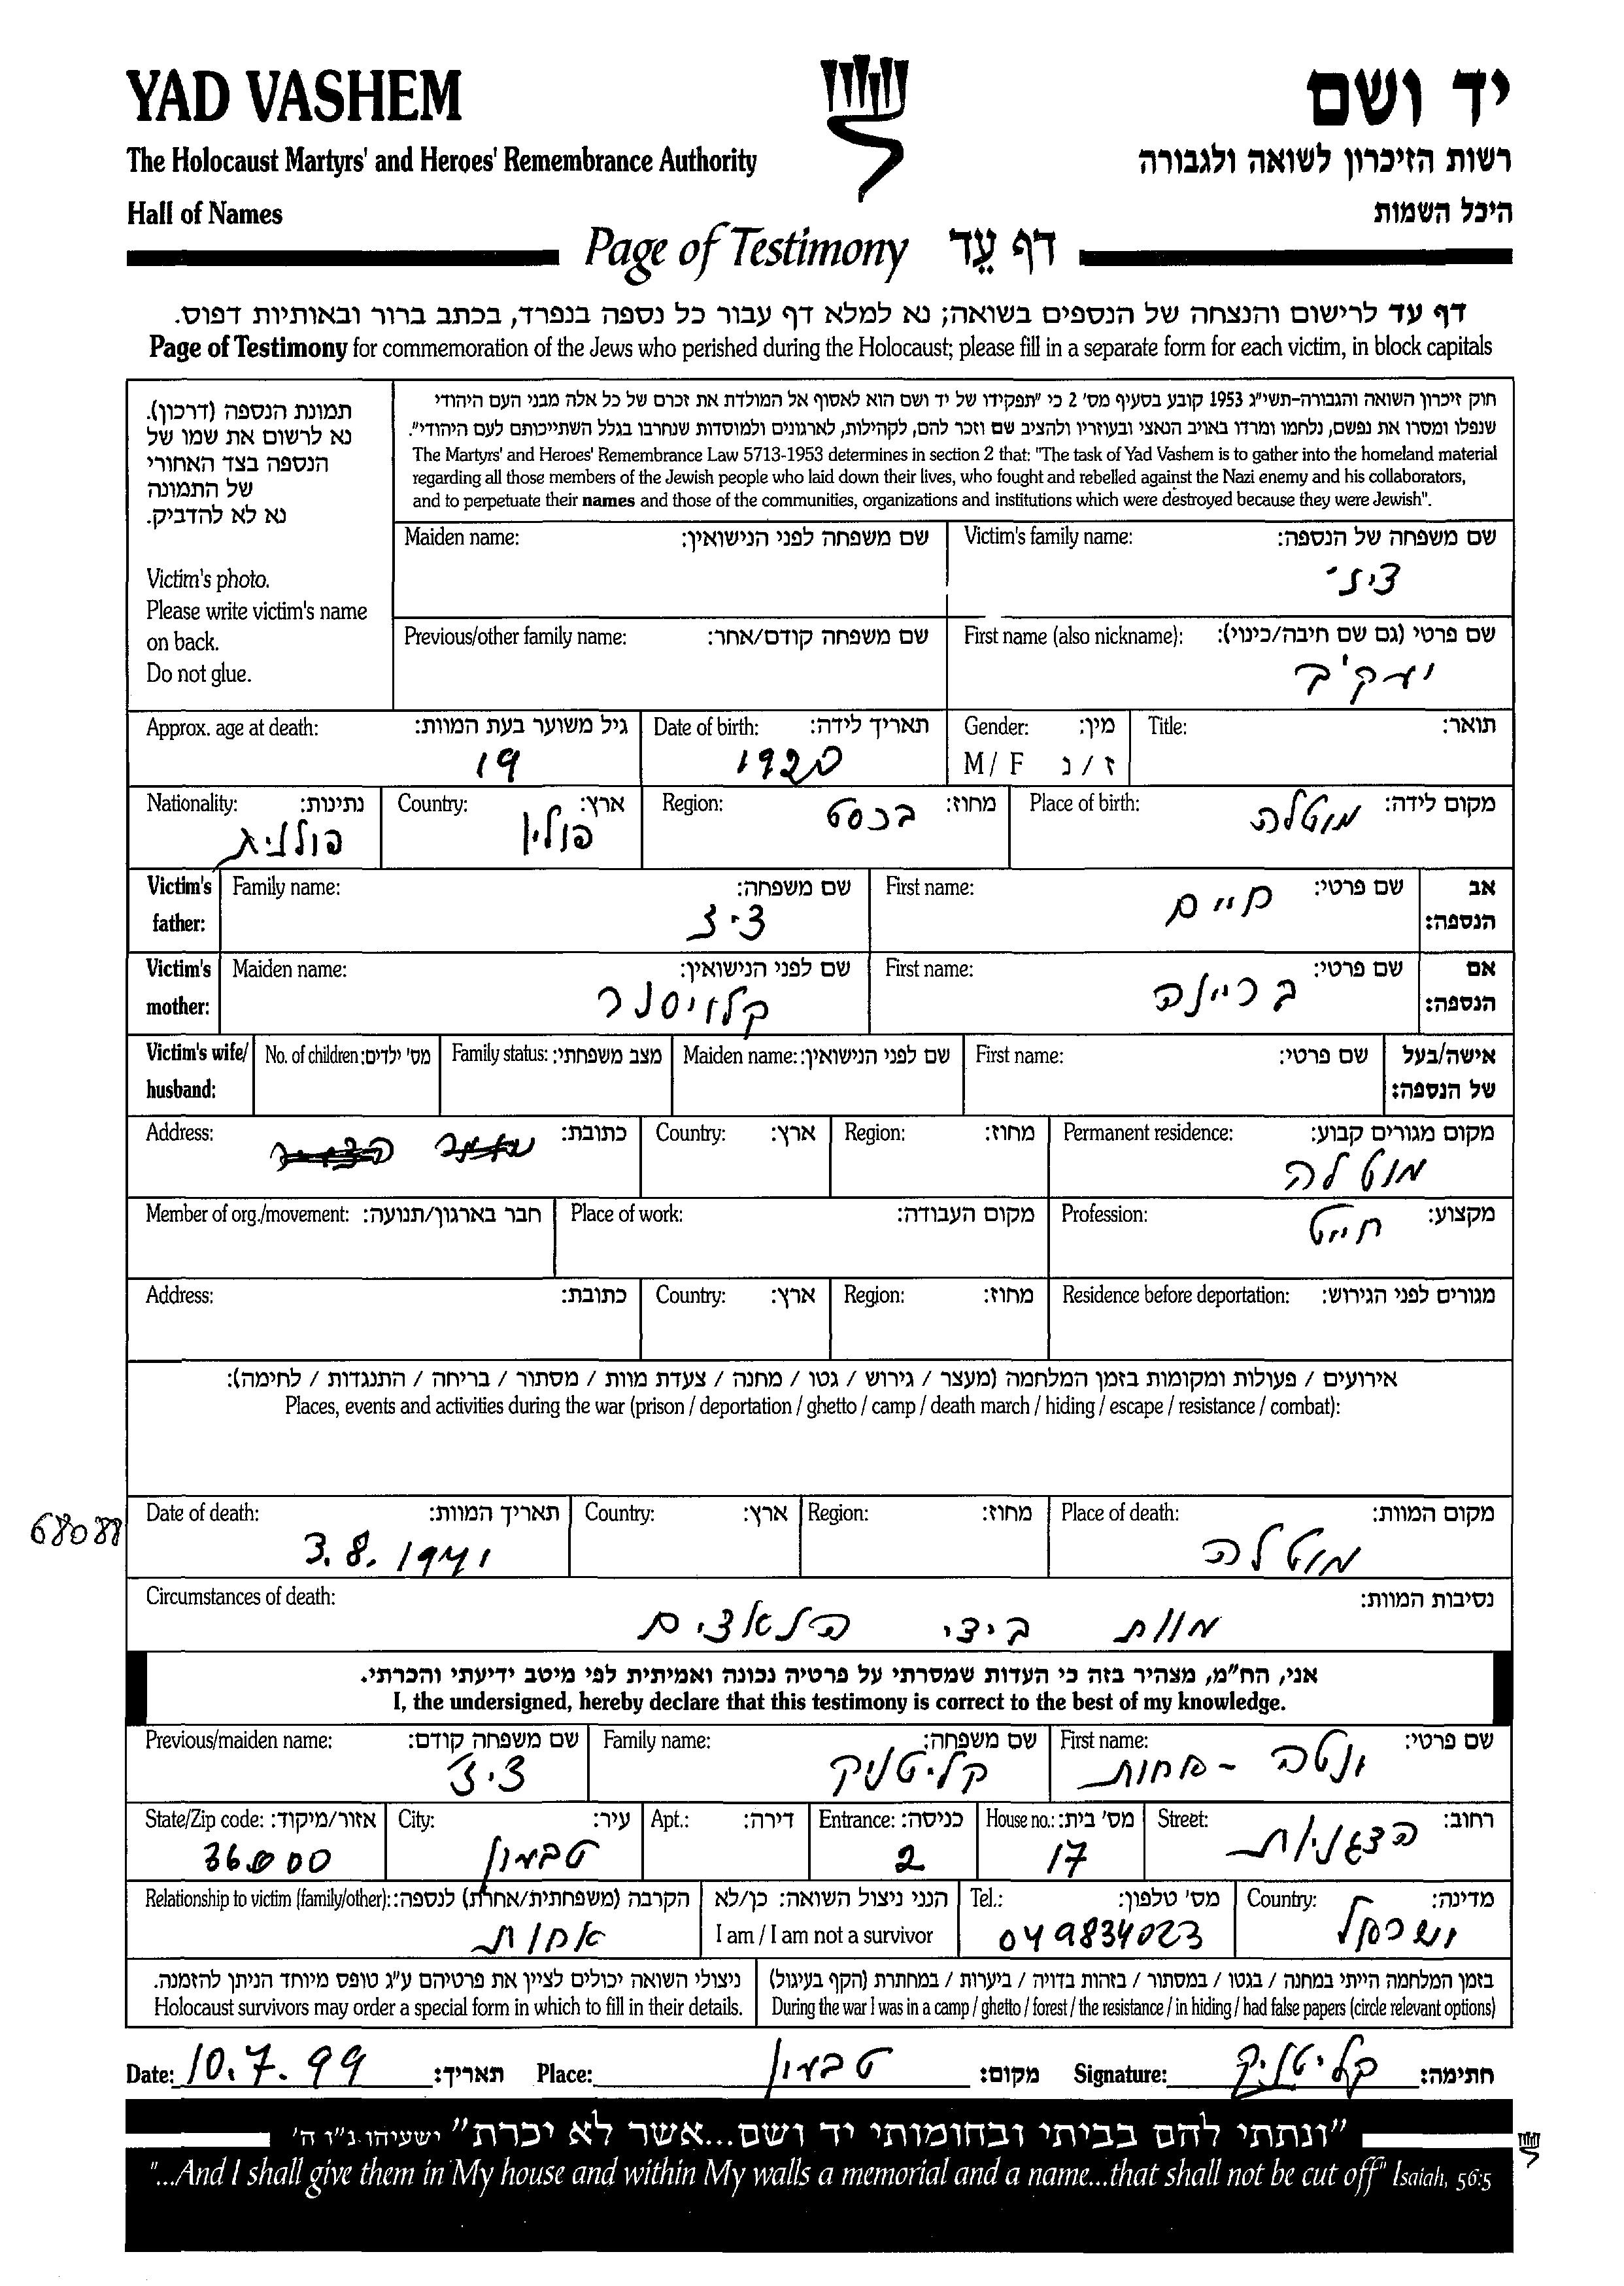 YAD VASHEM
יד ושם
The Holocaust Martyrs' and Heroes' Remembrance Authority
רשות הזיכרון לשואה ולגבורה
Hall of Names
היכל השמות
Page of Testimony דף עֵד
דף עד לרישום והנצחה של הנספים בשואה; נא למלא דף עבור כל נספה בנפרד, בכתב ברור ובאותיות דפוס.
Page of Testimony for commemoration of the Jews who perished during the Holocaust; please fill in a separate form for each victim, in block capitals
תמונת הנספה (דרכון).
נא לרשום את שמו של
הנספה בצד האחורי
של התמונה
נא לא להדביק.
Victim's photo.
Please write victim's name
on back.
Do not glue.
חוק זיכרון השואה והגבורה-תשי"ג 1953 קובע בסעיף מס' 2 כי "תפקידו של יד ושם הוא לאסוף אל המולדת את זכרם של כל אלה מבני העם היהודי
שנפלו ומסרו את נפשם, נלחמו ומרדו באויב הנאצי ובעוזריו ולהציב שם וזכר להם, לקהילות, לארגונים ולמוסדות שנחרבו בגלל השתייכותם לעם היהודי".
The Martyrs' and Heroes' Remembrance Law 5713-1953 determines in section 2 that: "The task of Yad Vashem is to gather into the homeland material
regarding all those members of the Jewish people who laid down their lives, who fought and rebelled against the Nazi enemy and his collaborators,
and to perpetuate their names and those of the communities, organizations and institutions which were destroyed because they were Jewish".
Maiden name: שם משפחה לפני הנישואין:
Victim's family name: שם משפחה של הנספה:
Previous/other family name: שם משפחה קודם/אחר:
First name (also nickname): שם פרטי (גם שם חיבה/כינוי):
יעקב
Approx. age at death: גיל משוער בעת המוות:
19
Date of birth: תאריך לידה:
1920
Gender: מין:
M / F ז / נ
Title: תואר:
Nationality: נתינות:
פולנית
Country: ארץ:
פולין
Region: מחוז:
Place of birth: מקום לידה:
מוטלה
Victim's father:
Family name: שם משפחה:
ציז
First name: שם פרטי:
חיים
אב הנספה:
Victim's mother:
Maiden name: שם לפני הנישואין:
קלויסנר
First name: שם פרטי:
בריינה
אם הנספה:
Victim's wife/ husband:
No. of children: מס' ילדים:
Family status: מצב משפחתי:
Maiden name: שם לפני הנישואין:
First name: שם פרטי:
אישה/בעל של הנספה:
Address: כתובת:
Country: ארץ:
Region: מחוז:
Permanent residence: מקום מגורים קבוע:
מוטלה
Member of org./movement: חבר בארגון/תנועה:
Place of work: מקום העבודה:
Profession: מקצוע:
חייט
Address: כתובת:
Country: ארץ:
Region: מחוז:
Residence before deportation: מגורים לפני הגירוש:
אירועים / פעולות ומקומות בזמן המלחמה (מעצר / גירוש / גטו / מחנה / צעדת מוות / מסתור / בריחה / התנגדות / לחימה):
Places, events and activities during the war (prison / deportation / ghetto / camp / death march / hiding / escape / resistance / combat):
68088
Date of death: תאריך המוות:
3.8.1941
Country: ארץ:
Region: מחוז:
Place of death: מקום המוות:
מוטלה
Circumstances of death: נסיבות המוות:
מוות בידי הנאצים
אני, הח"מ, מצהיר בזה כי העדות שמסרתי על פרטיה נכונה ואמיתית לפי מיטב ידיעתי והכרתי.
I, the undersigned, hereby declare that this testimony is correct to the best of my knowledge.
Previous/maiden name: שם משפחה קודם:
ציז
Family name: שם משפחה:
קליטניק
First name: שם פרטי:
State/Zip code: אזור/מיקוד:
36000
City: עיר:
טבעון
Apt.: דירה:
Entrance: כניסה:
2
House no.: מס' בית:
17
Street: רחוב:
Relationship to victim (family/other): הקרבה (משפחתית/אחרת) לנספה:
אחות
הנני ניצול השואה: כן/לא
I am / I am not a survivor
Tel.: מס' טלפון:
049834023
Country: מדינה:
ישראל
ניצולי השואה יכולים לציין את פרטיהם ע"ג טופס מיוחד הניתן להזמנה.
Holocaust survivors may order a special form in which to fill in their details.
בזמן המלחמה הייתי במחנה / בגטו / במסתור / בזהות בדויה / ביערות / במחתרת (הקף בעיגול)
During the war I was in a camp / ghetto / forest / the resistance / in hiding / had false papers (circle relevant options)
Date: 10.7.99 תאריך:
Place: טבעון מקום:
Signature: קליטניק חתימה:
"ונתתי להם בביתי ובחומותי יד ושם...אשר לא יכרת" ישעיהו נ"ו ה'
"...And I shall give them in My house and within My walls a memorial and a name...that shall not be cut off" Isaiah, 56:5